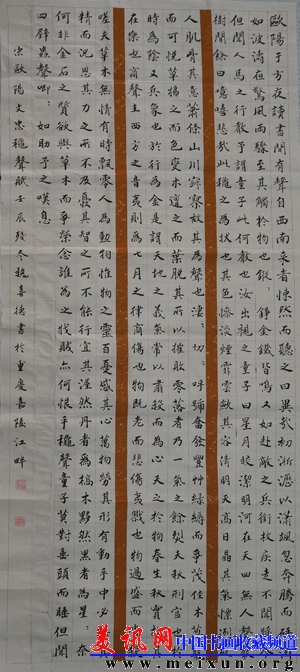 歐陽子方夜讀書聞有聲自西南來者悚然而聽之曰異哉初淅瀝以瀟颯忽奔騰而砰湃
如波濤夜驚風雨驟至其觸於物也鏦:錚:金鐵皆鳴又如赴敵之兵銜枚疾走不聞號令
但聞人馬之行聲予謂童子此何聲也汝出視之童子曰星月皎潔明河在天四無人聲聲在
樹間余曰噫嘻悲哉此穐之為狀也其色慘淡煙霏雲斂其容清明天高日晶其氣慄冽砭
人肌骨其意蕭條山川寂寥故其為聲也淒:切:呼號奮發豐草綠縟而爭茂佳木蔥蘢
而可悅草拂之而色變木遭之而葉脫其所以摧敗零落者乃一氣之餘烈夫秋刑官也於
時為陰又兵象也於行為金是謂天地之義氣常以肅殺而為心天之於物春生秋實故其
在樂也商聲主西方之音夷則為七月之律商傷也物既老而悲傷夷戮也物過盛而當殺
嗟夫草木無情有時飄零人為動物惟物之靈百憂感其心萬物勞其形有動乎中必搖其
精而況思其力之所不及憂其智之所不能行宜其渥然丹者為槁木黟然黑者為星:奈
何非金石之質欲與草木而爭榮念誰為之戕賊亦何恨乎穐聲童子莫對垂頭而睡但聞
四壁蟲聲唧:如助予之嘆息
宋歐陽文忠穐聲賦壬辰殘冬趙喜德書於重慶嘉陵江畔
美讯网 中国书画收藏频道
www.meixun.org